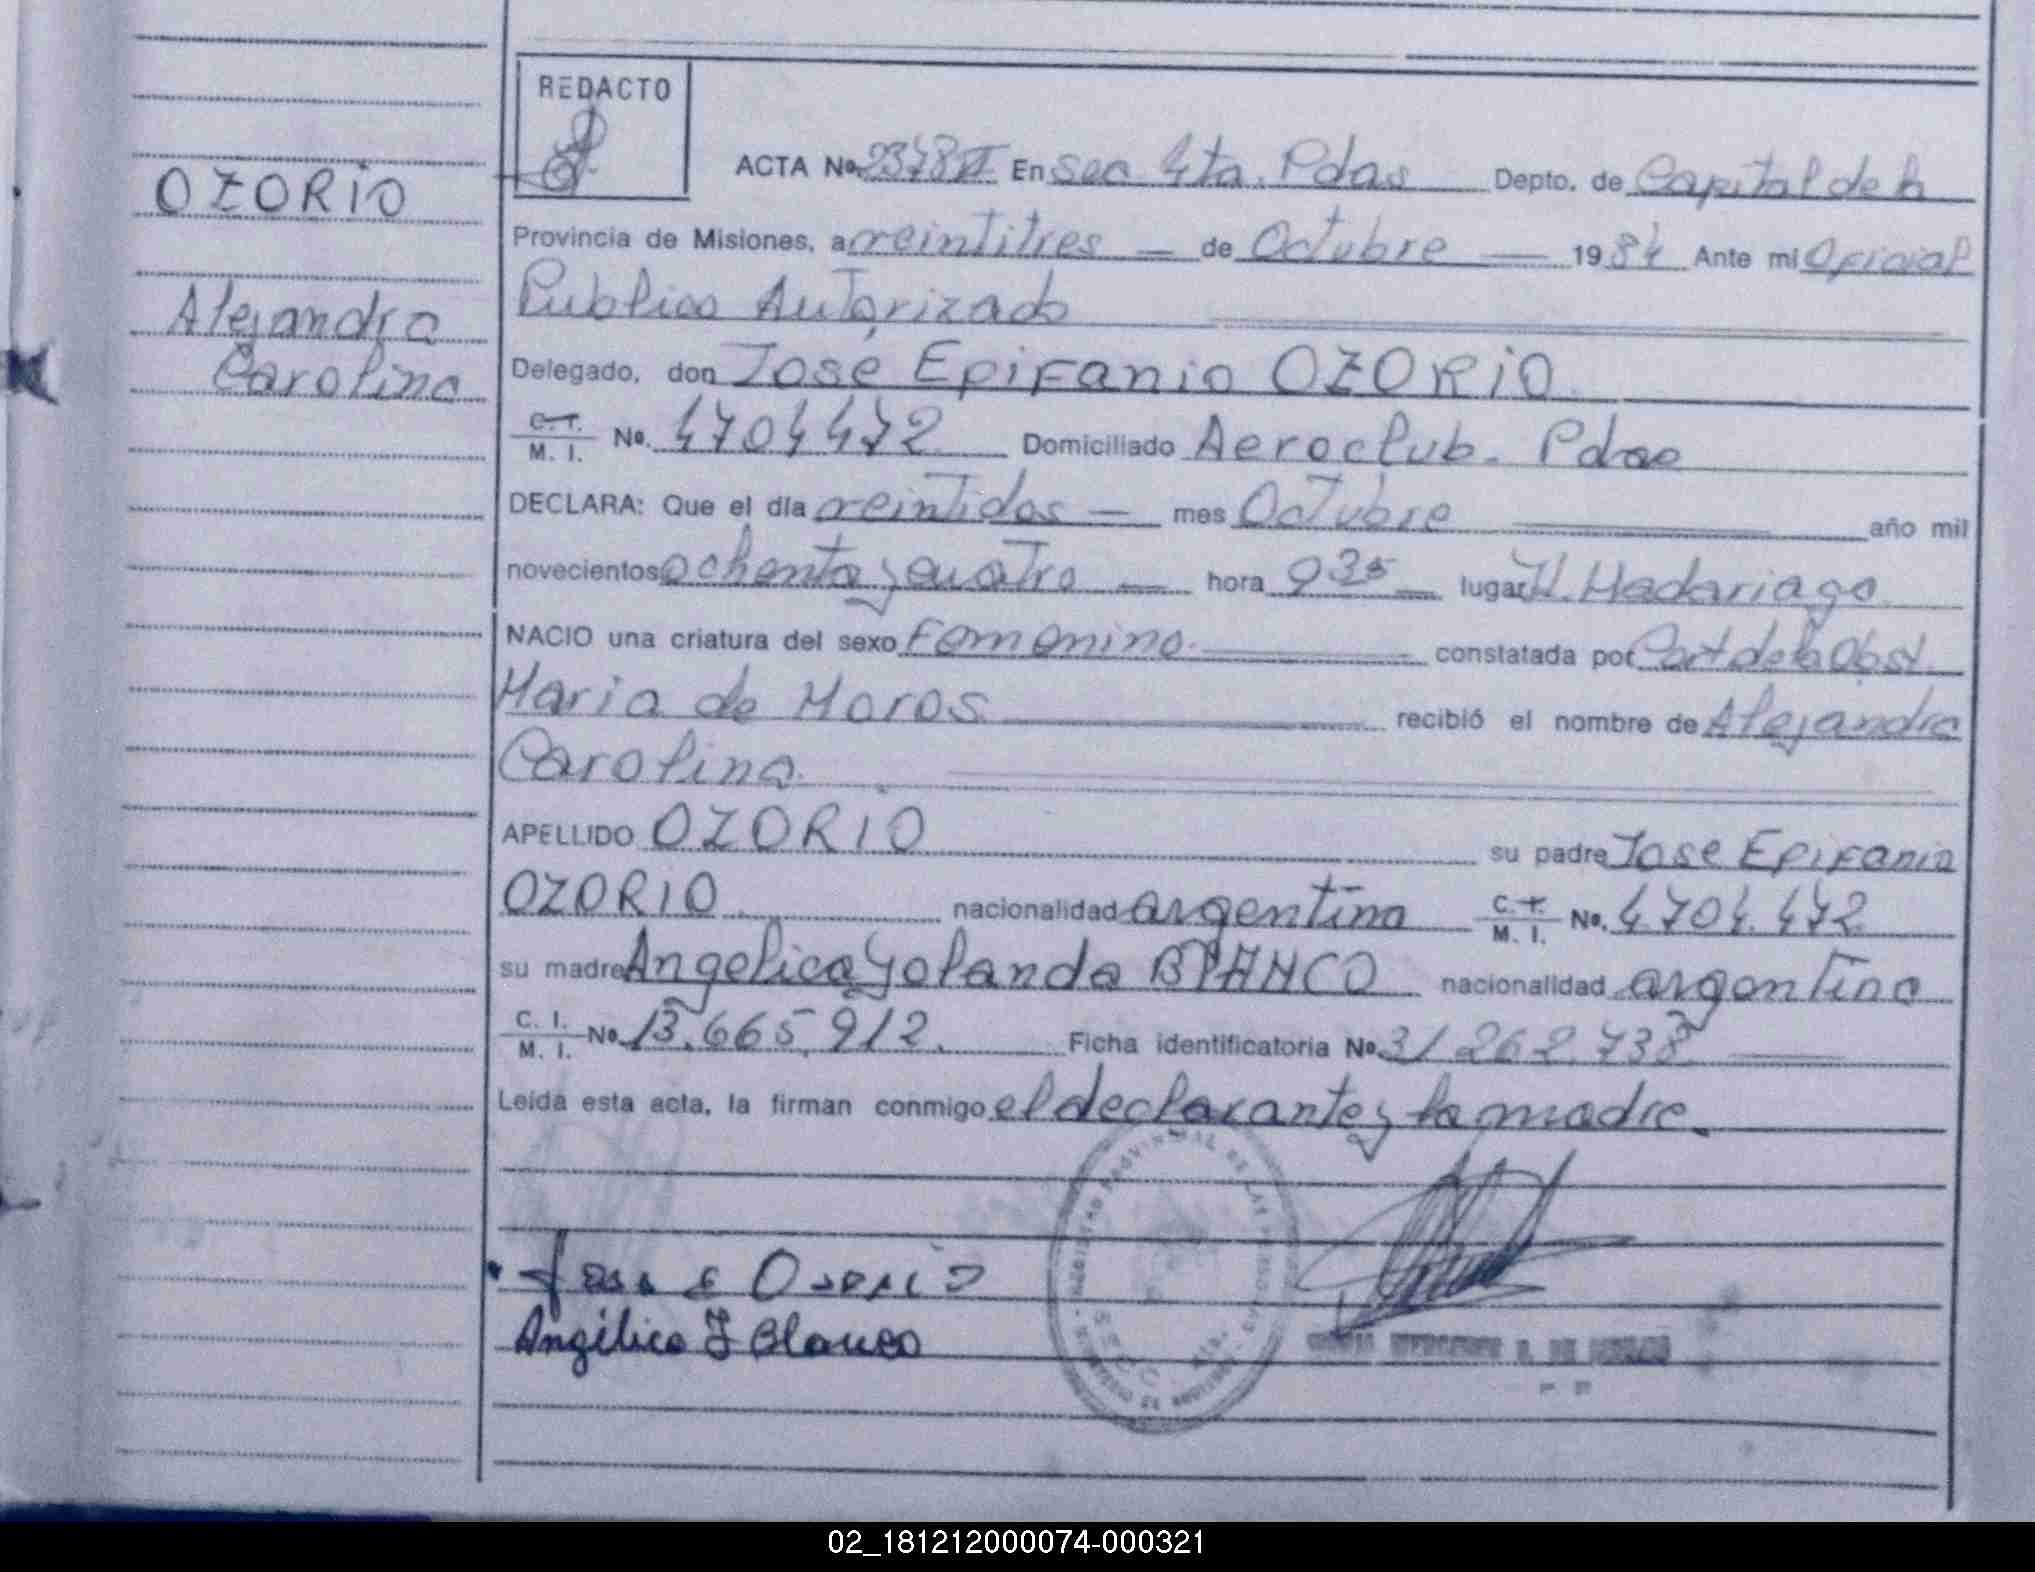 REDACTO
OZORIO
Alejandra
Carolina
ACTA No. 2378 II En Sec 4ta. Pdas Depto. de Capital de la
Provincia de Misiones, a veintitres — de Octubre — 1984 Ante mi Oficial
Publico Autorizado
Delegado, don José Epifanio OZORIO
C.I. M. I. No. 4704472 Domiciliado Aeroclub. Pdas
DECLARA: Que el día veintidos — mes Octubre año mil
novecientos ochenta y cuatro — hora 9 35 lugar H. Madariaga
NACIO una criatura del sexo Femenino. constatada por Part de la Obst.
Maria de Moros recibió el nombre de Alejandra
Carolina.
APELLIDO OZORIO su padre Jose Epifanio
OZORIO nacionalidad argentina C.I. M. I. No. 4.704.472
su madre Angelica Yolanda BLANCO nacionalidad argentina
C. I. M. I. No. 13.665.912. Ficha identificatoria No. 31.262.738
Leída esta acta, la firman conmigo el declarante y la madre.
Jose E Osorio
Angélica Y Blanco
02_181212000074-000321